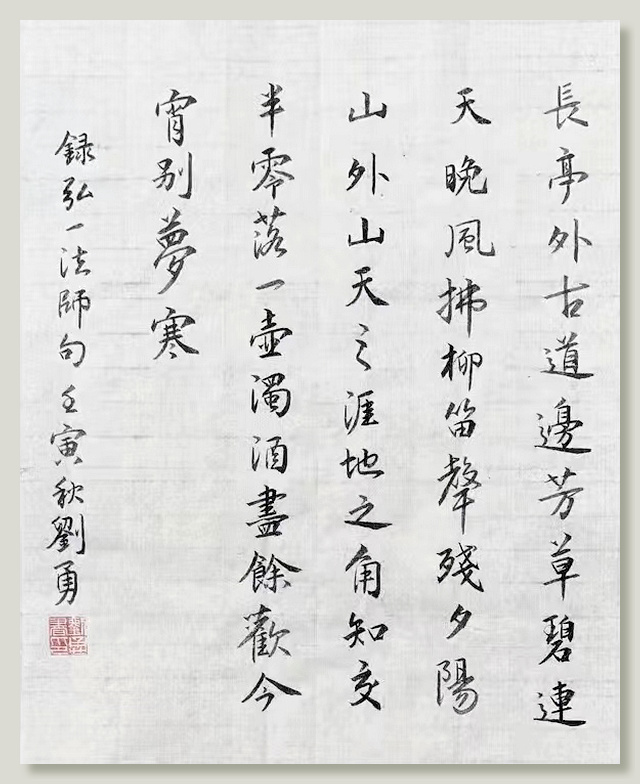 長亭外古道邊芳草碧連
天晚風拂柳笛聲殘夕陽
山外山天之涯地之角知交
半零落一壺濁酒盡餘歡今
宵別夢寒
録弘一法師句壬寅秋劉勇